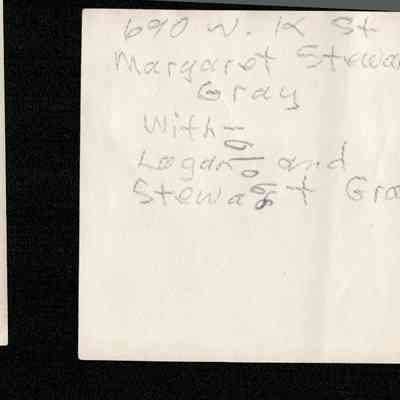 690 W. K St
Margaret Stewar
Gray
With-
Logan and
Stewart Gra